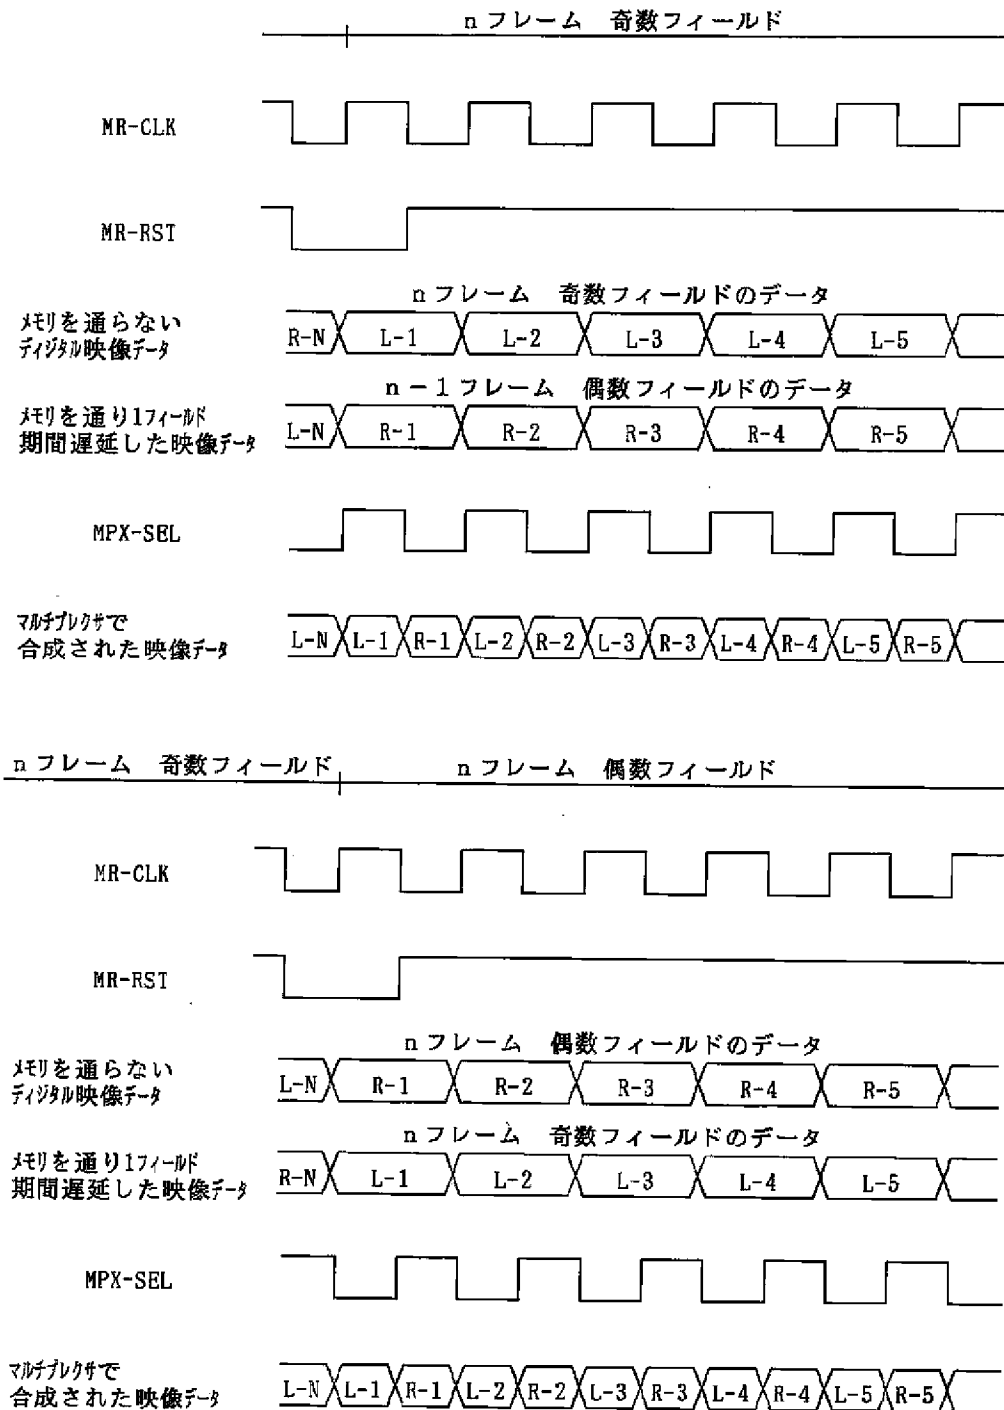 nフレーム 奇数フィールド
MR-CLK
MR-RST
nフレーム 奇数フィールドのデータ
メモリを通らない
ディジタル映像データ
R-N L-1 L-2 L-3 L-4 L-5
n-1フレーム 偶数フィールドのデータ
メモリを通り1フィールド
期間遅延した映像データ
L-N R-1 R-2 R-3 R-4 R-5
MPX-SEL
マルチプレクサで
合成された映像データ
L-N L-1 R-1 L-2 R-2 L-3 R-3 L-4 R-4 L-5 R-5
nフレーム 奇数フィールド nフレーム 偶数フィールド
MR-CLK
MR-RST
nフレーム 偶数フィールドのデータ
メモリを通らない
ディジタル映像データ
L-N R-1 R-2 R-3 R-4 R-5
nフレーム 奇数フィールドのデータ
メモリを通り1フィールド
期間遅延した映像データ
R-N L-1 L-2 L-3 L-4 L-5
MPX-SEL
マルチプレクサで
合成された映像データ
L-N L-1 R-1 L-2 R-2 L-3 R-3 L-4 R-4 L-5 R-5